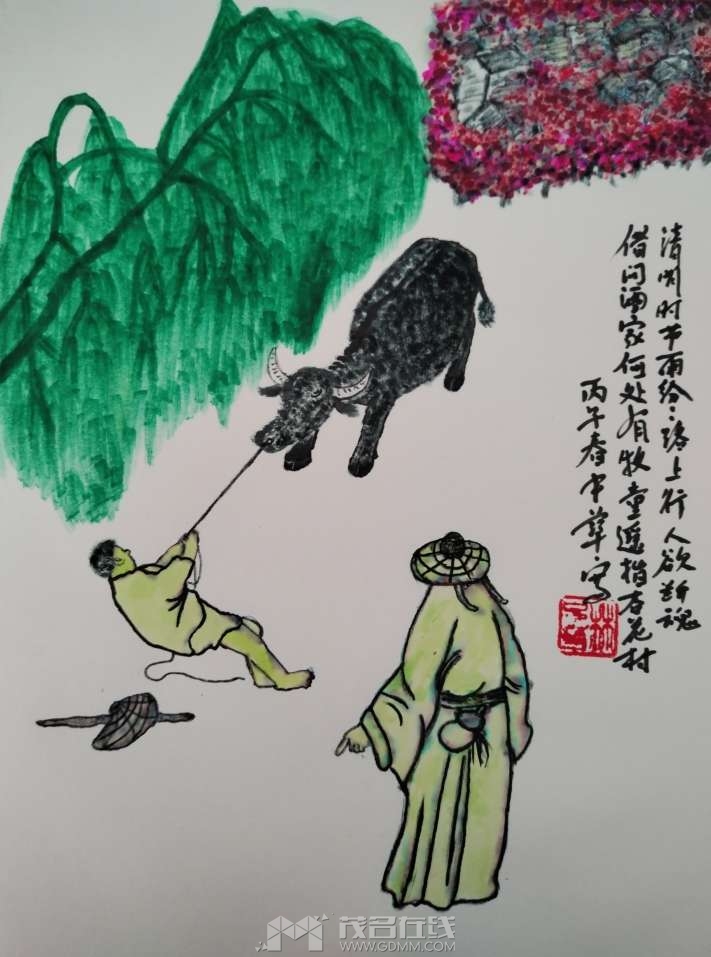 清明时节雨纷〻路上行人欲断魂
借问酒家何处有牧童遥指杏花村
丙午春中华写
茂名在线
WWW.GDMM.COM